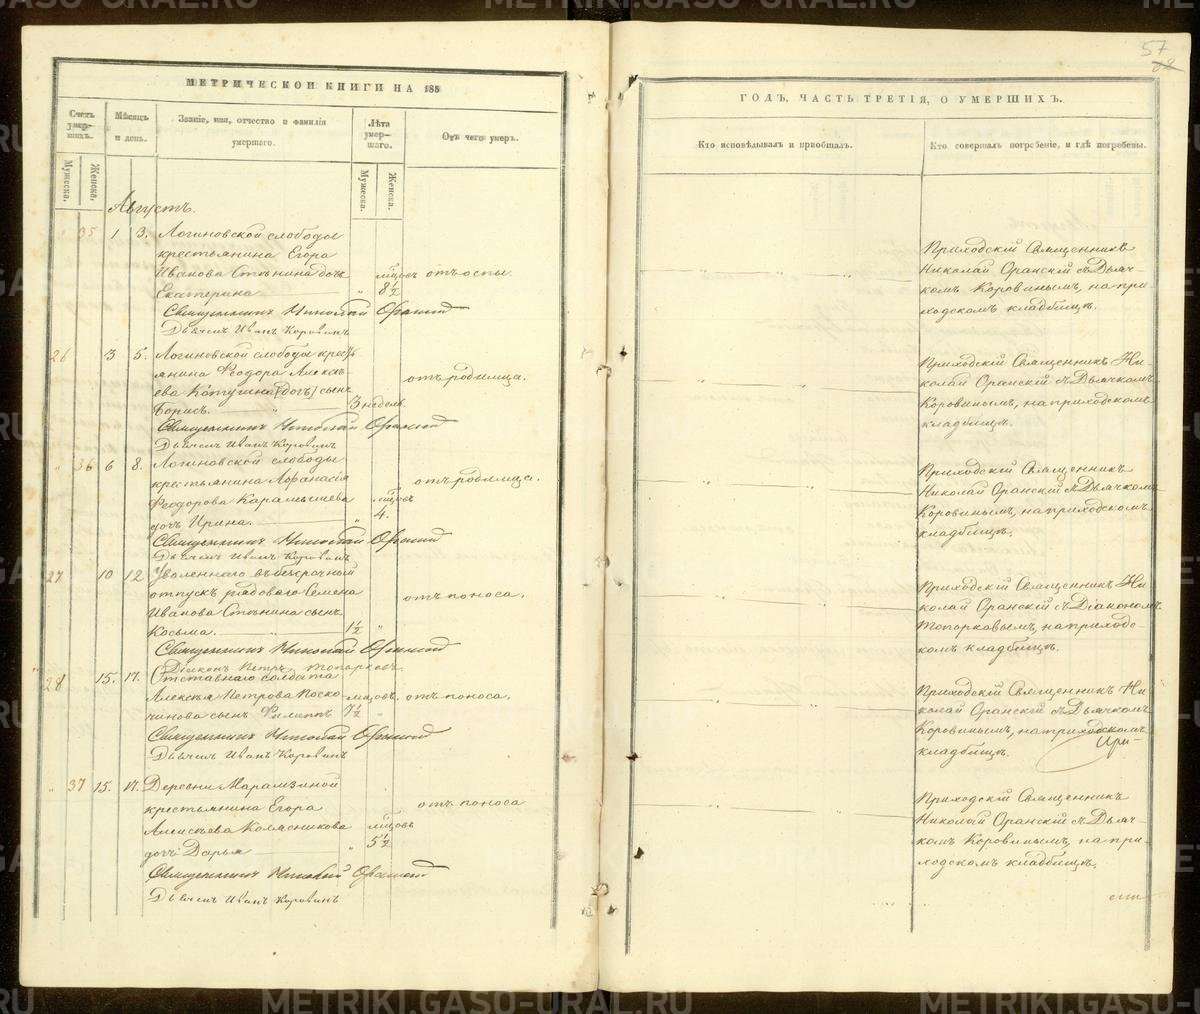 МЕТРИЧЕСКОЙ КНИГИ НА 185
Счетъ умер-шихъ.
Мужеска.
Женска.
Мѣсяцъ и день.
Званіе, имя, отчество и фамилія умершаго.
Лѣта умер-шаго.
Мужеска.
Женска.
Отъ чего умеръ.
Августъ.
35 1 3. Логиновской слободы
крестьянина Егора
Иванова дочь мѣсцовъ отъ оспы.
Екатерина 8½
Священникъ Николай Оранскій
Дьячекъ Иванъ Коровинъ
26 3 5. Логиновской слободы кресть
янина Феодора Алексѣ-
ева сынъ отъ родимца.
Борисъ. 3 недѣль
Священникъ Николай Оранскій
Дьячекъ Иванъ Коровинъ
36 6 8. Логиновской слободы
крестьянина Афанасія отъ родимца.
Феодорова Карамышева мѣсцовъ
дочь Ирина. 4.
Священникъ Николай Оранскій
Дьячекъ Иванъ Коровинъ
27 10 12 Уволеннаго въ безсрочный
отпускъ рядоваго Семена отъ поноса.
Иванова сынъ
Косьма. 1½
Священникъ Николай Оранскій
Діаконъ Петръ Топорковъ.
28 15. 17. Отставнаго солдата
Алексѣя Петрова Поско- мѣсцовъ отъ поноса.
чинова сынъ Филиппъ 7½
Священникъ Николай Оранскій
Дьячекъ Иванъ Коровинъ
37 15. 17. Деревни Марамзиной
крестьянина Егора отъ поноса
Алексѣева Колясникова мѣсцовъ
дочь Дарья 5½
Священникъ Николай Оранскій
Дьячекъ Иванъ Коровинъ
57
ГОДЪ, ЧАСТЬ ТРЕТІЯ, О УМЕРШИХЪ.
Кто исповѣдывалъ и пріобщалъ.
Кто совершалъ погребеніе, и гдѣ погребены.
Приходскій Священникъ
Николай Оранскій съ Дьяч-
комъ Коровинымъ, на при-
ходскомъ кладбищѣ.
Приходскій Священникъ Ни
колай Оранскій съ Дьячкомъ
Коровинымъ, на приходскомъ
кладбищѣ.
Приходскій Священникъ
Николай Оранскій съ Дьячкомъ
Коровинымъ, на приходскомъ
кладбищѣ.
Приходскій Священникъ Ни
колай Оранскій съ Діакономъ
Топорковымъ, на приходс-
комъ кладбищѣ.
Приходскій Священникъ Ни
колай Оранскій съ Дьячкомъ
Коровинымъ, на приходскомъ
кладбищѣ.
Приходскій Священникъ
Николай Оранскій съ Дьяч-
комъ Коровинымъ, на при-
ходскомъ кладбищѣ.
METRIKI.GASO-URAL.RU